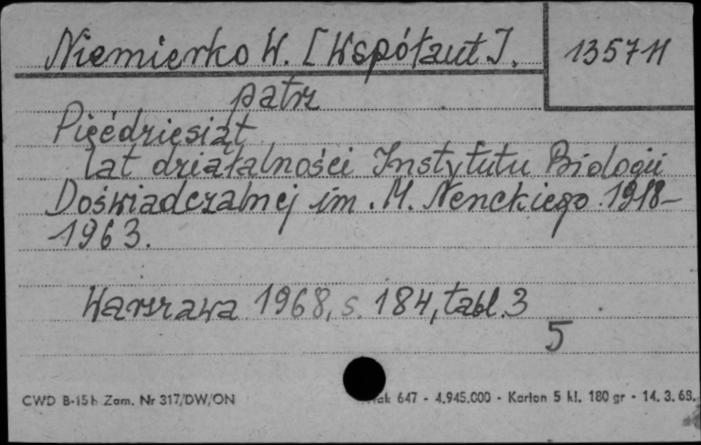 Niemierko W. [Współaut]. 13571
patrz
Pięćdziesiąt
lat działalności Instytutu Biologii
Doświadczalnej im. M. Nenckiego 1918-
1963.
Warszawa 1968, s. 184, tabl. 3
5
CWD B-15h Zam. Nr 317/DW/ON 647 - 4.945.000 - Karton 5 kl. 180 gr - 14. 3. 63.